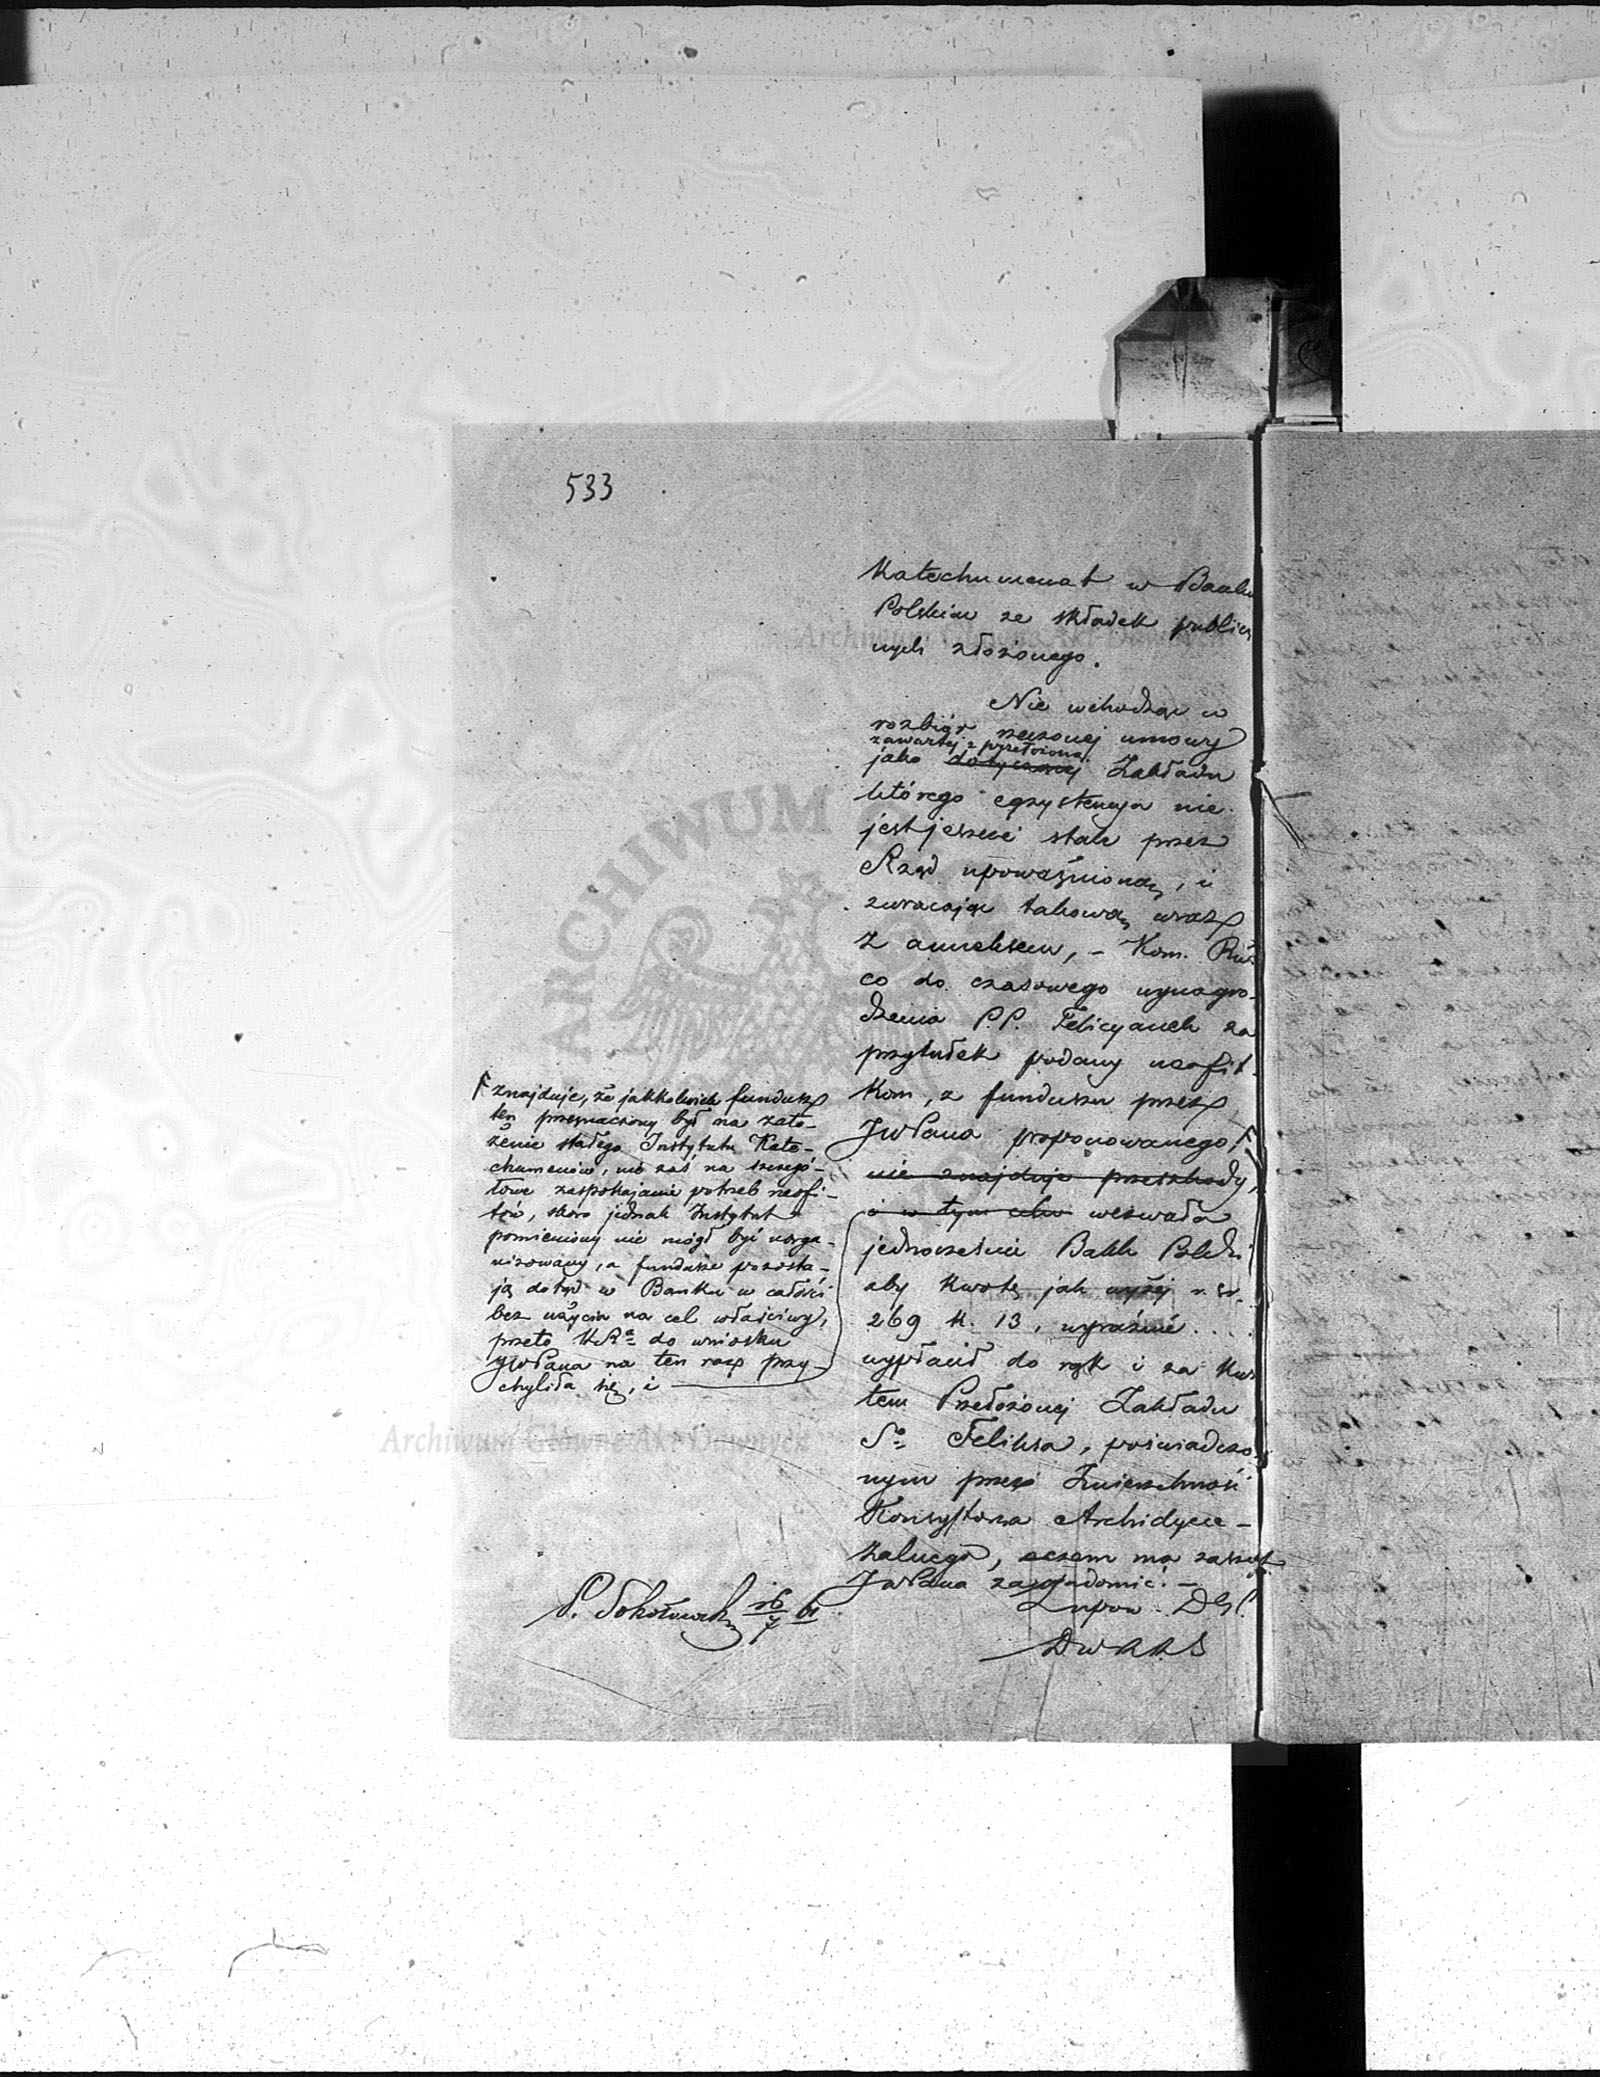 533
Katechumenat w Banku
Polskim ze składek publicz
nych złożonego.
Nie wchodząc w
rozbiór rzeczonej umowy
zawartej z przełożoną
jako dotyczącej Zakładu
którego egzystencya nie
jest jeszcze stale przez
Rząd upoważnioną, i
zwracając takową wraz
z annexem, – Kom. Rząd
co do czasowego wynagro-
dzenia P.P. Felicyanek za
przytułek podany neofit-
kom, z funduszu przez
JWPana proponowanego,
nie znajduje przeszkody,
i w tym celu wezwała
jednocześnie Bank Polski
aby kwotę jak wyżej r. sr.
269 k. 13, wyraźnie....
wypłacił do rąk i za kwi
tem Przełożonej Zakładu
Sgo Felixa, poświadczo
nym przez Zwierzchność
Konsystorza Archidyece-
zalnego, o czem ma zaszczyt
JWPana zawiadomić. –
Znajduje, że jakkolwiek fundusz
ten przeznaczony był na zało-
żenie stałego Instytutu Kate-
chumenów, nie zaś na szczegó-
łowe zaspokajanie potrzeb neofi-
tów, skoro jednak Instytut
pomieniony nie mógł być uorga-
nizowany, a fundusze pozosta-
ją dotąd w Banku w całości
bez użycia na cel właściwy,
przeto KRa do wniosku
JWPana na ten raz przy-
chyliła się, i
P. Sokołowski 16/7 61
Archiwum Główne Akt Dawnych
ARCHIWUM
Archiwum Główne Akt Dawnych